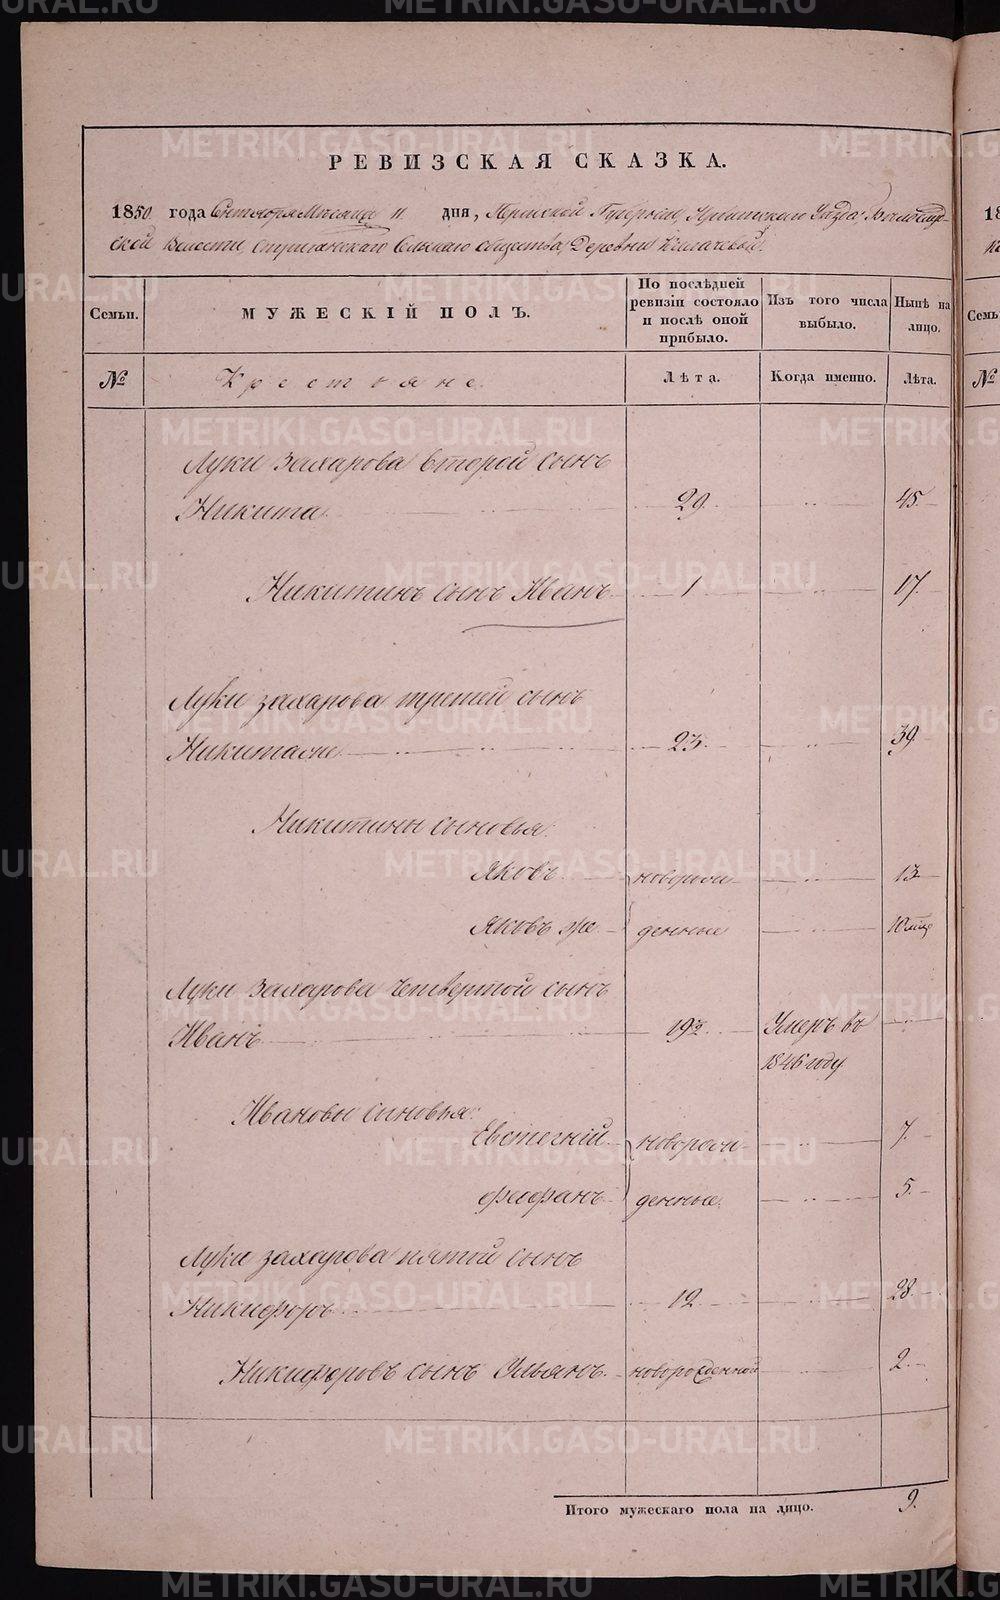 РЕВИЗСКАЯ СКАЗКА.
1850 года Сентября Месяца 11 дня, Пермской Губернии, Ирбитскаго Уезда,
ской Волости, Стриганскаго Сельскаго общества, Деревни
Семьи. МУЖЕСКІЙ ПОЛЪ. По послѣдней ревизіи состояло и послѣ оной прибыло. Изъ того числа выбыло. Нынѣ на лицо.
№ Крестьяне. Лѣта. Когда именно. Лѣта.
Луки Захарова второй сынъ
Никита 29. 45.
Никитинъ сынъ Иванъ 1 17.
Луки Захарова третей сынъ
Никита же 23. 39
Никитины сыновья:
Яковъ новорож 13
Яковъ же денные 10 мцъ
Луки Захарова четвертой сынъ
Иванъ 19½ Умеръ въ
1846 году
Ивановы сыновья:
Евстегній новорож 7.
Феофанъ денные. 5.
Луки Захарова пятый сынъ
Никифоръ 12. 28.
Никифоровъ сынъ Ульянъ новорожденной 2.
Итого мужескаго пола на лицо. 9.
18
Семь
№
METRIKI.GASO-URAL.RU